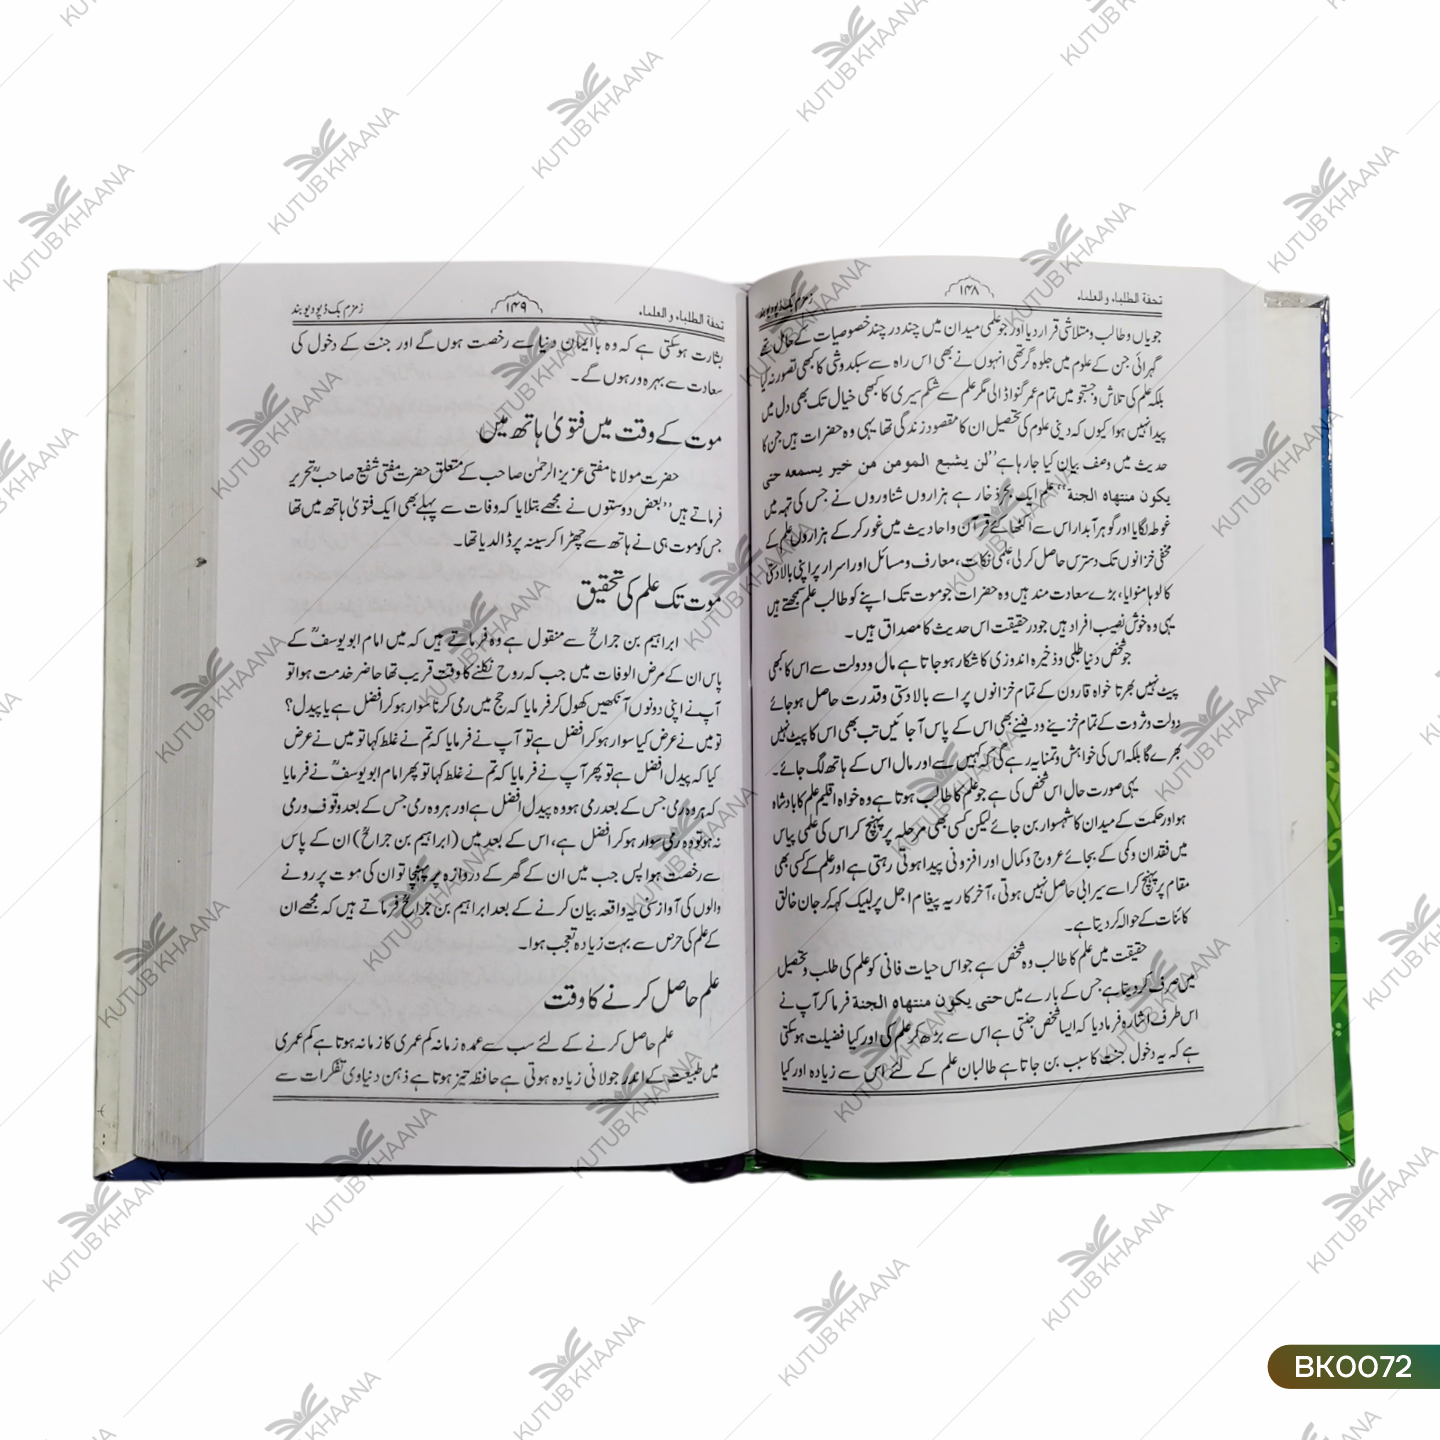 تحفۃ الطلباء والعلماء ۱۴۸ زمزم بک ڈپو دیوبند
جویاں و طالب و متلاشی قرار دیا اور جو علمی میدان میں چند در چند خصوصیات کے حامل تھے
گہرائی جن کے علوم میں جلوہ گر تھی انہوں نے بھی اس راہ سے سبکدوشی کا کبھی تصور نہ کیا
بلکہ علم کی تلاش و جستجو میں تمام عمر گنوا ڈالی مگر علم سے شکم سیری کا کبھی خیال تک بھی دل میں
پیدا نہیں ہوا کیوں کہ دینی علوم کی تحصیل ان کا مقصود زندگی تھا یہی وہ حضرات ہیں جن کا
حدیث میں وصف بیان کیا جا رہا ہے ”لن یشبع المومن من خیر یسمعه حتی
یکون منتهاه الجنة“ علم ایک بحر ذخار ہے ہزاروں شناوروں نے جس کی تہہ میں
غوطہ لگایا اور گوہر آبدار اس سے اکٹھا کئے قرآن و احادیث میں غور کر کے ہزاروں علم کے
مخفی خزانوں تک دسترس حاصل کر لی، علمی نکات، معارف و مسائل اور اسرار پر اپنی بالا دستی
کا لوہا منوایا، بڑے سعادت مند ہیں وہ حضرات جو موت تک اپنے کو طالب علم سمجھتے ہیں
یہی وہ خوش نصیب افراد ہیں جو در حقیقت اس حدیث کا مصداق ہیں۔
جو شخص دنیا طلبی و ذخیرہ اندوزی کا شکار ہو جاتا ہے مال و دولت سے اس کا کبھی
پیٹ نہیں بھرتا خواہ قارون کے تمام خزانوں پر اسے بالا دستی و قدرت حاصل ہو جائے
دولت و ثروت کے تمام خزینے و دفینے بھی اس کے پاس آ جائیں تب بھی اس کا پیٹ نہیں
بھرے گا بلکہ اس کی خواہش و تمنا یہ رہے گی کہ کہیں سے اور مال اس کے ہاتھ لگ جائے۔
یہی صورت حال اس شخص کی ہے جو علم کا طالب ہوتا ہے وہ خواہ اقلیم علم کا بادشاہ
ہو اور حکمت کے میدان کا شہسوار بن جائے لیکن کسی بھی مرحلہ پر پہنچ کر اس کی علمی پیاس
میں فقدان و کمی کے بجائے عروج و کمال اور افزونی پیدا ہوتی رہتی ہے اور علم کے کسی بھی
مقام پر پہنچ کر اسے سیرابی حاصل نہیں ہوتی، آخر کار یہ پیغام اجل پر لبیک کہہ کر جان خالق
کائنات کے حوالہ کر دیتا ہے۔
حقیقت میں علم کا طالب وہ شخص ہے جو اس حیات فانی کو علم کی طلب و تحصیل
میں صرف کر دیتا ہے جس کے بارے میں حتی یکون منتهاه الجنة فرما کر آپ نے
اس طرف اشارہ فرما دیا کہ ایسا شخص جنتی ہے اس سے بڑھ کر علم کی اور کیا فضیلت ہو سکتی
ہے کہ یہ دخول جنت کا سبب بن جاتا ہے طالبان علم کے لئے اس سے زیادہ اور کیا
تحفۃ الطلباء والعلماء ۱۴۹ زمزم بک ڈپو دیوبند
بشارت ہو سکتی ہے کہ وہ با ایمان دنیا سے رخصت ہوں گے اور جنت کے دخول کی
سعادت سے بہرہ ور ہوں گے۔
موت کے وقت میں فتویٰ ہاتھ میں
حضرت مولانا مفتی عزیز الرحمٰن صاحب کے متعلق حضرت مفتی شفیع صاحبؒ تحریر
فرماتے ہیں ”بعض دوستوں نے مجھے بتلایا کہ وفات سے پہلے بھی ایک فتویٰ ہاتھ میں تھا
جس کو موت ہی نے ہاتھ سے چھڑا کر سینہ پر ڈال دیا تھا۔
موت تک علم کی تحقیق
ابراہیم بن جراحؒ سے منقول ہے وہ فرماتے ہیں کہ میں امام ابو یوسفؒ کے
پاس ان کے مرض الوفات میں جب کہ روح نکلنے کا وقت قریب تھا حاضر خدمت ہوا تو
آپ نے اپنی دونوں آنکھیں کھول کر فرمایا کہ حج میں رمی کرنا سوار ہو کر افضل ہے یا پیدل؟
تو میں نے عرض کیا سوار ہو کر افضل ہے تو آپ نے فرمایا کہ تم نے غلط کہا تو میں نے عرض
کیا کہ پیدل افضل ہے تو پھر آپ نے فرمایا کہ تم نے غلط کہا تو پھر امام ابو یوسفؒ نے فرمایا
کہ ہر وہ رمی جس کے بعد رمی ہو وہ پیدل افضل ہے اور ہر وہ رمی جس کے بعد وقوف و رمی
نہ ہو تو وہ رمی سوار ہو کر افضل ہے، اس کے بعد میں (ابراہیم بن جراحؒ) ان کے پاس
سے رخصت ہوا پس جب میں ان کے گھر کے دروازہ پر پہنچا تو ان کی موت پر رونے
والوں کی آواز سنی یہ واقعہ بیان کرنے کے بعد ابراہیم بن جراحؒ فرماتے ہیں کہ مجھے ان
کے علم کی حرص سے بہت زیادہ تعجب ہوا۔
علم حاصل کرنے کا وقت
علم حاصل کرنے کے لئے سب سے عمدہ زمانہ کم عمری کا زمانہ ہوتا ہے کم عمری
میں طبیعت کے اندر جولانی زیادہ ہوتی ہے حافظہ تیز ہوتا ہے ذہن دنیاوی تفکرات سے
KUTUB KHAANA
BK0072